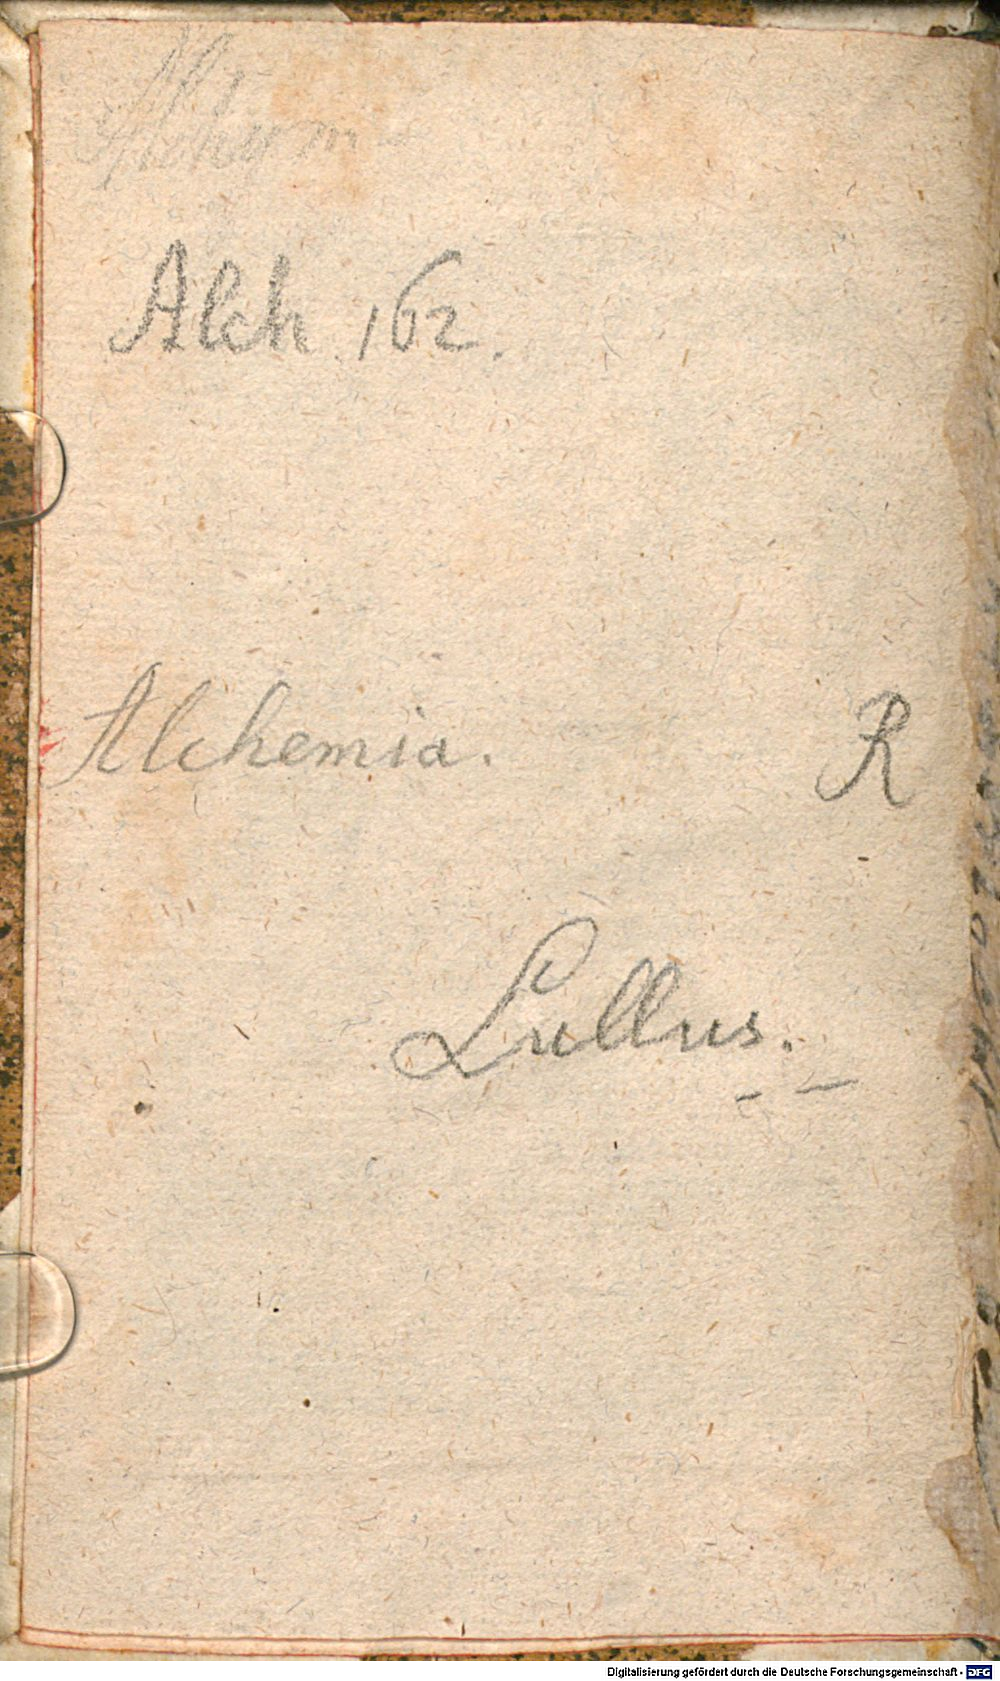 Alch 162.
Alchemia. R
Lullus.
Digitalisierung gefördert durch die Deutsche Forschungsgemeinschaft - DFG